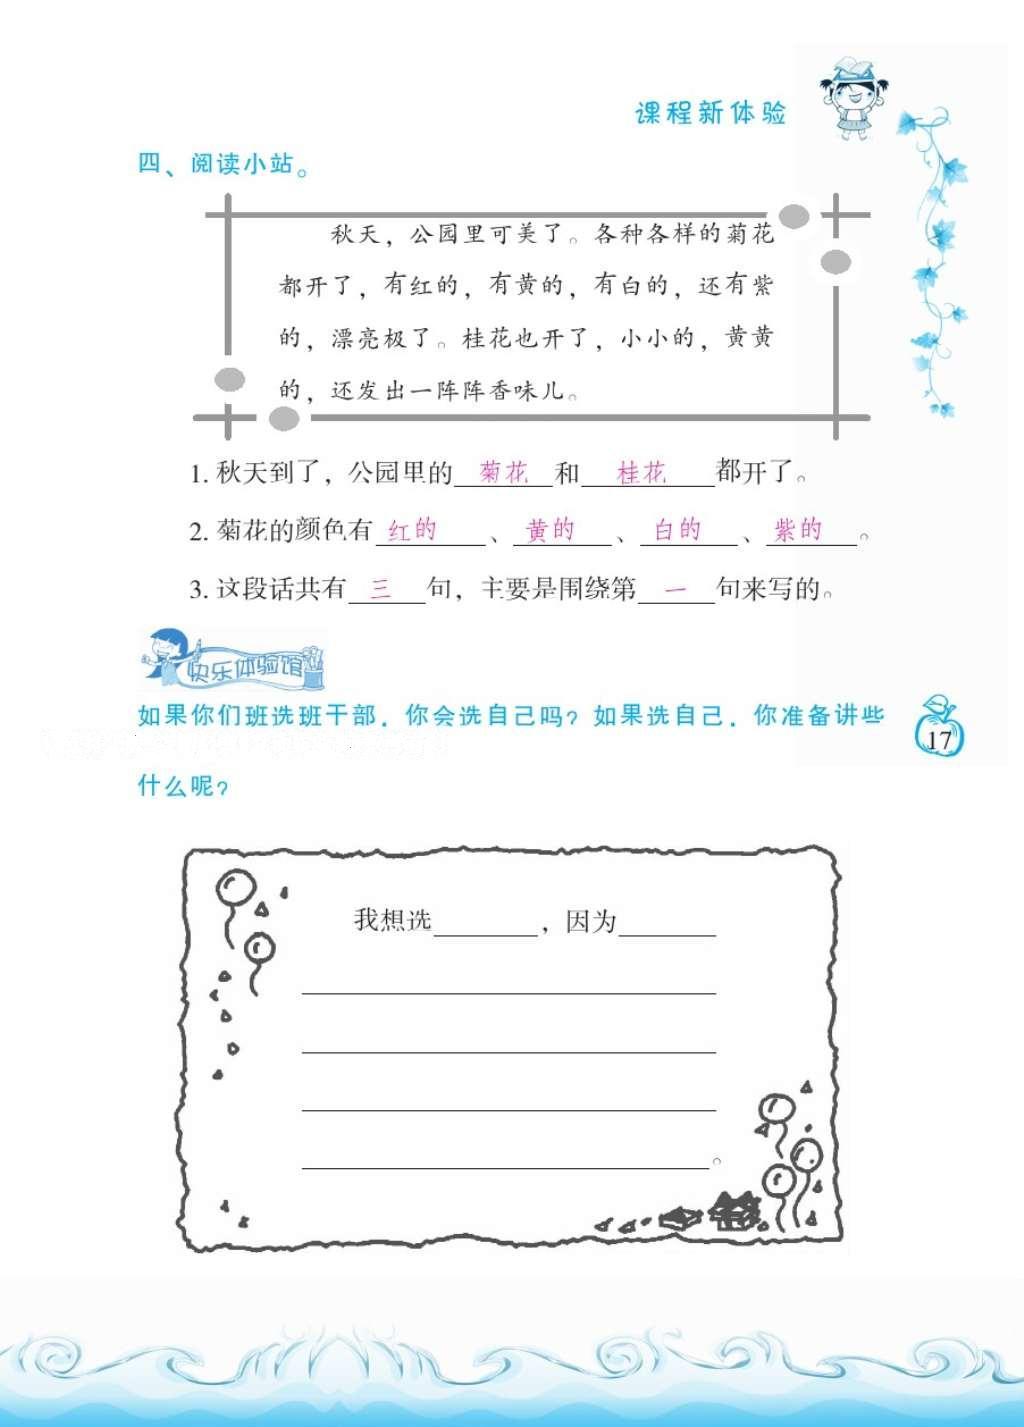 课程新体验
四、阅读小站。
秋天，公园里可美了。各种各样的菊花
都开了，有红的，有黄的，有白的，还有紫
的，漂亮极了。桂花也开了，小小的，黄黄
的，还发出一阵阵香味儿。
1. 秋天到了，公园里的 菊花 和 桂花 都开了。
2. 菊花的颜色有 红的 、 黄的 、 白的 、 紫的 。
3. 这段话共有 三 句，主要是围绕第 一 句来写的。
快乐体验馆
如果你们班选班干部，你会选自己吗？如果选自己，你准备讲些
17
什么呢？
我想选________，因为________
。